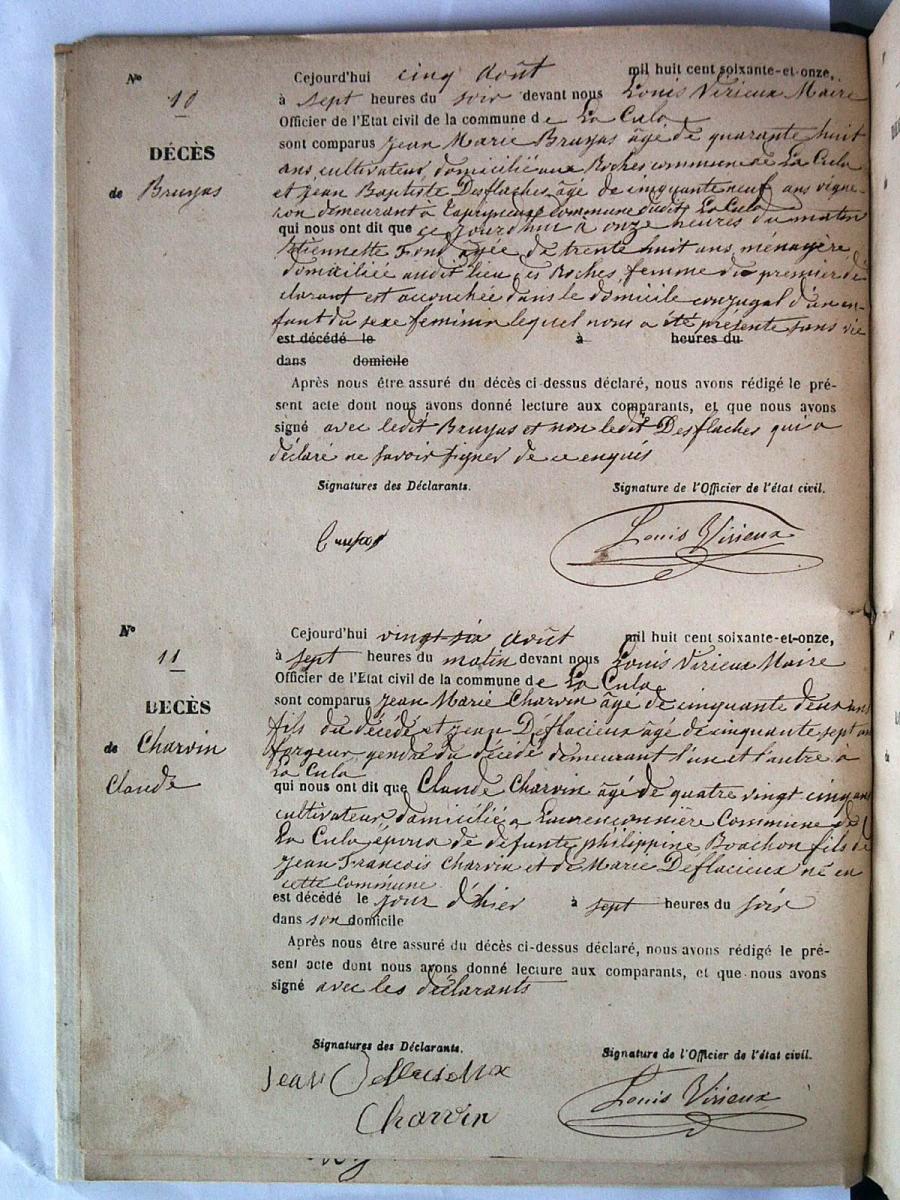 N°
10
DÉCÈS
de Bruyas
Cejourd'hui cinq août mil huit cent soixante-et-onze,
à sept heures du soir devant nous Louis Virieux Maire
Officier de l'Etat civil de la commune de La Cula
sont comparus Jean Marie Bruyas âgé de quarante huit
ans cultivateur, domicilié aux Roches commune de La Cula
et Jean Baptiste Desflaches, âgé de cinquante neuf ans vigne-
ron demeurant à commune dudit La Cula
qui nous ont dit que ce jourd'hui à onze heures du matin
Etiennette Fond agée de trente huit ans, ménagère,
domiciliée audit lieu des Roches, femme du premier dé-
clarant est accouchée dans le domicile conjugal d'un en-
fant du sexe feminin lequel nous a été présenté sans vie
est décédé le à heures du
dans domicile
Après nous être assuré du décès ci-dessus déclaré, nous avons rédigé le pré-
sent acte dont nous avons donné lecture aux comparants, et que nous avons
signé avec ledit Bruyas et non ledit Desflaches qui a
déclaré ne savoir signer de ce enquis
Signatures des Déclarants. Signature de l'Officier de l'état civil.
Bruyas Louis Virieux
N°
11
DÉCÈS
de Charvin
Claude
Cejourd'hui vingt-six août mil huit cent soixante-et-onze,
à sept heures du matin devant nous Louis Virieux Maire
Officier de l'Etat civil de la commune de La Cula
sont comparus Jean Marie Charvin âgé de cinquante deux ans
fils du décédé et Jean Déflacieux âgé de cinquante sept ans
forgeur gendre du décédé demeurant l'un et l'autre à
La Cula
qui nous ont dit que Claude Charvin âgé de quatre vingt cinq ans
cultivateur, domicilié à Laurençonnière Commune de
La Cula époux de défunte philippine Boachon fils de
Jean François Charvin et de Marie Déflacieux né en
cette Commune
est décédé le jour d'hier à sept heures du soir
dans son domicile
Après nous être assuré du décès ci-dessus déclaré, nous avons rédigé le pré-
sent acte dont nous avons donné lecture aux comparants, et que nous avons
signé avec les déclarants
Signatures des Déclarants. Signature de l'Officier de l'état civil.
Jean
Charvin Louis Virieux